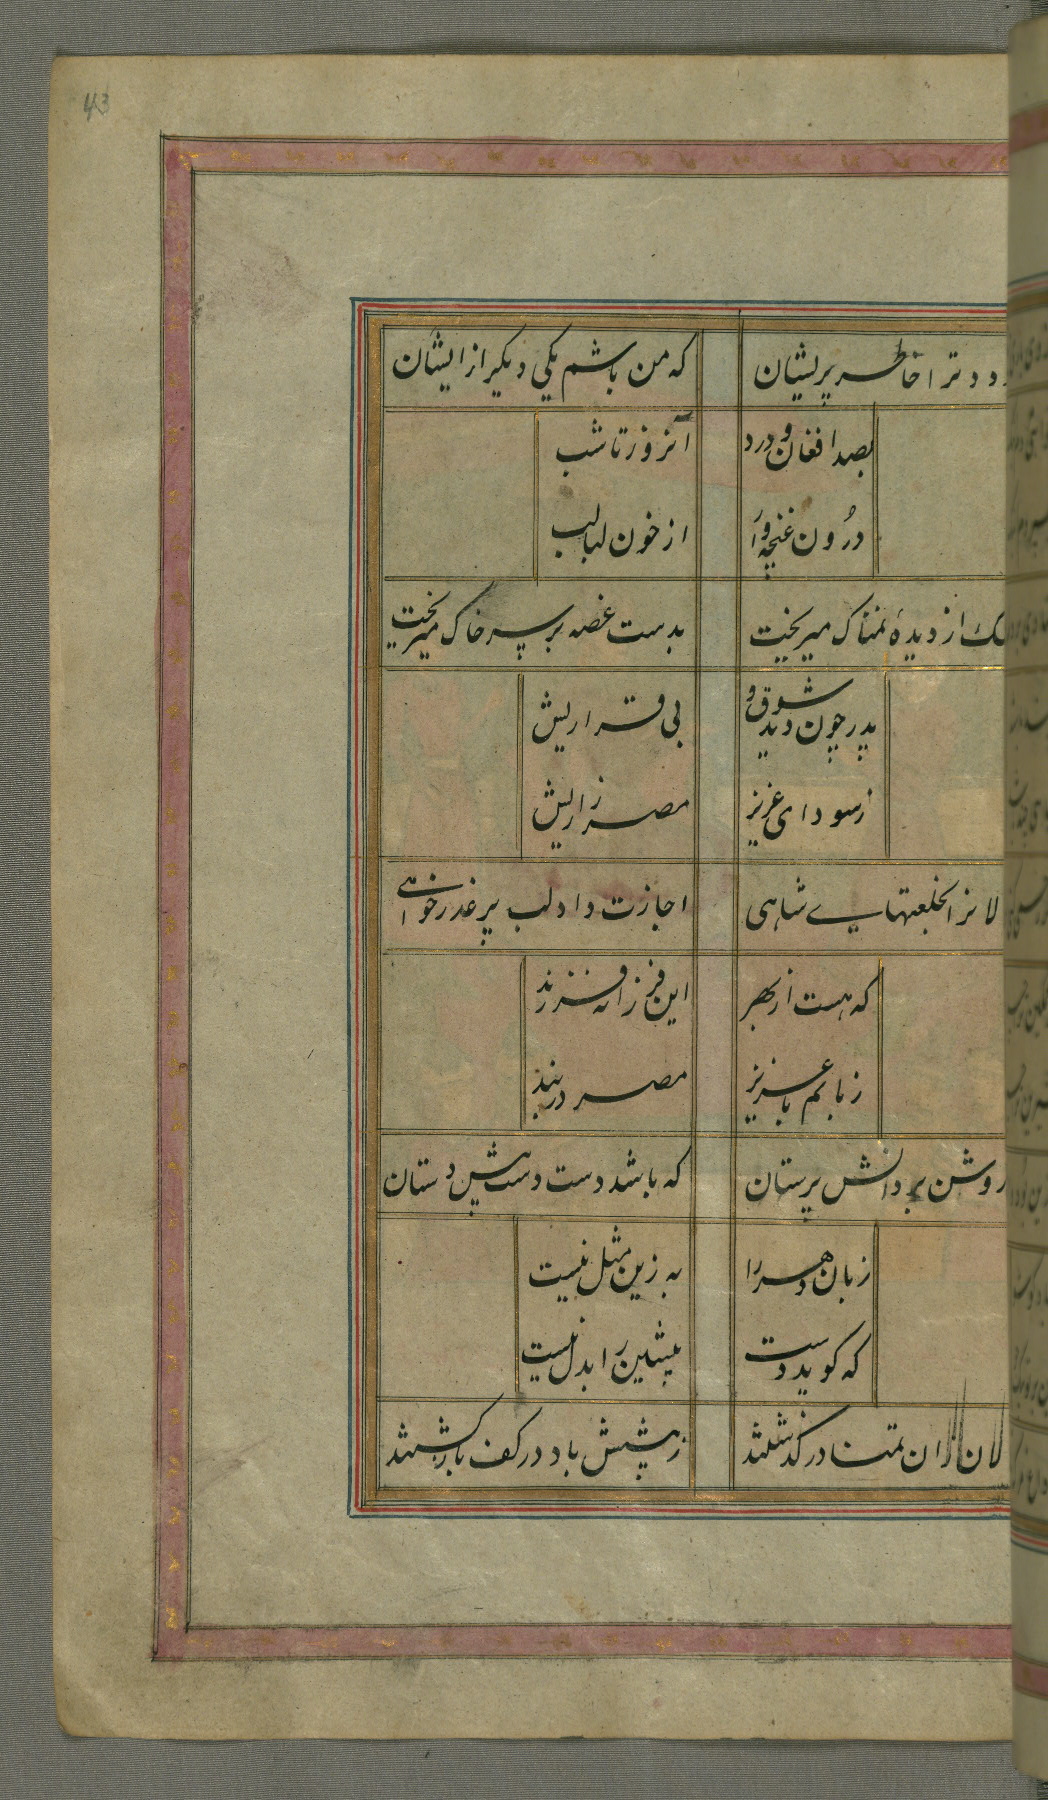 43
ود ترا خاطر پریشان
که من باشم یکی دیگر از ایشان
بصد افغان و درد
آنروز تا شب
درون غنچه وار
از خون لبالب
از دیدهٔ نمناک میریخت
بدست غصه بر سر خاک میریخت
پدر چون دید شوق و
بی قراریش
ز سودای عزیز
مصر زاریش
بخلعتهای شاهی
اجازت داد لب پر عذرخواهی
که هست از بهر
این فرزانه فرزند
زبانم با عزیز
مصر در بند
روشن بر دانش پرستان
که باشد دست دست پیش دستان
زبان دهر را
به زین مثل نیست
که گوید دست
پیشین را بدل نیست
لان زان تمنا در گذشتند
ز پیشش باد در کف باز گشتند